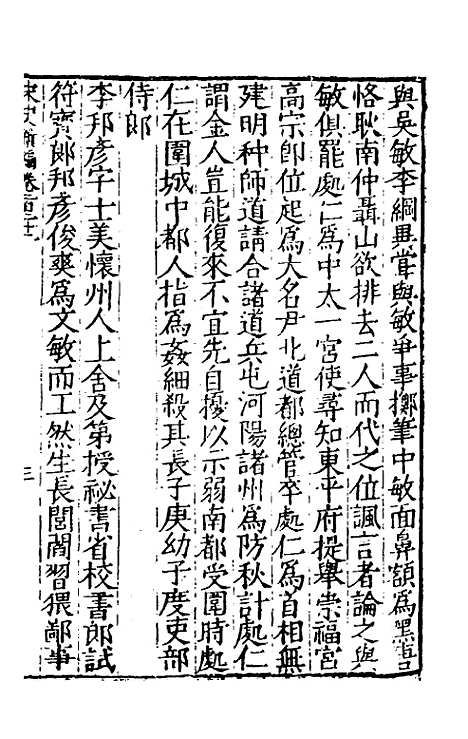 與吳敏李綱異嘗與敏爭事擲筆中敏面鼻額爲黑唐
恪耿南仲聶山欲排去二人而代之位諷言者論之與
敏俱罷處仁爲中太一宮使尋知東平府提舉崇福宮
高宗卽位起爲大名尹北道都總管卒處仁爲首相無
建明种師道請合諸道兵屯河陽諸州爲防秋計處仁
謂金人豈能復來不宜先自擾以示弱南都受圍時處
仁在圍城中都人指爲姦細殺其長子庚幼子度吏部
侍郞
李邦彥字士美懷州人上舍及第授祕書省校書郞試
符寶郞邦彥俊爽爲文敏而工然生長閭閻習猥鄙事
宋史新編卷一百二十
三